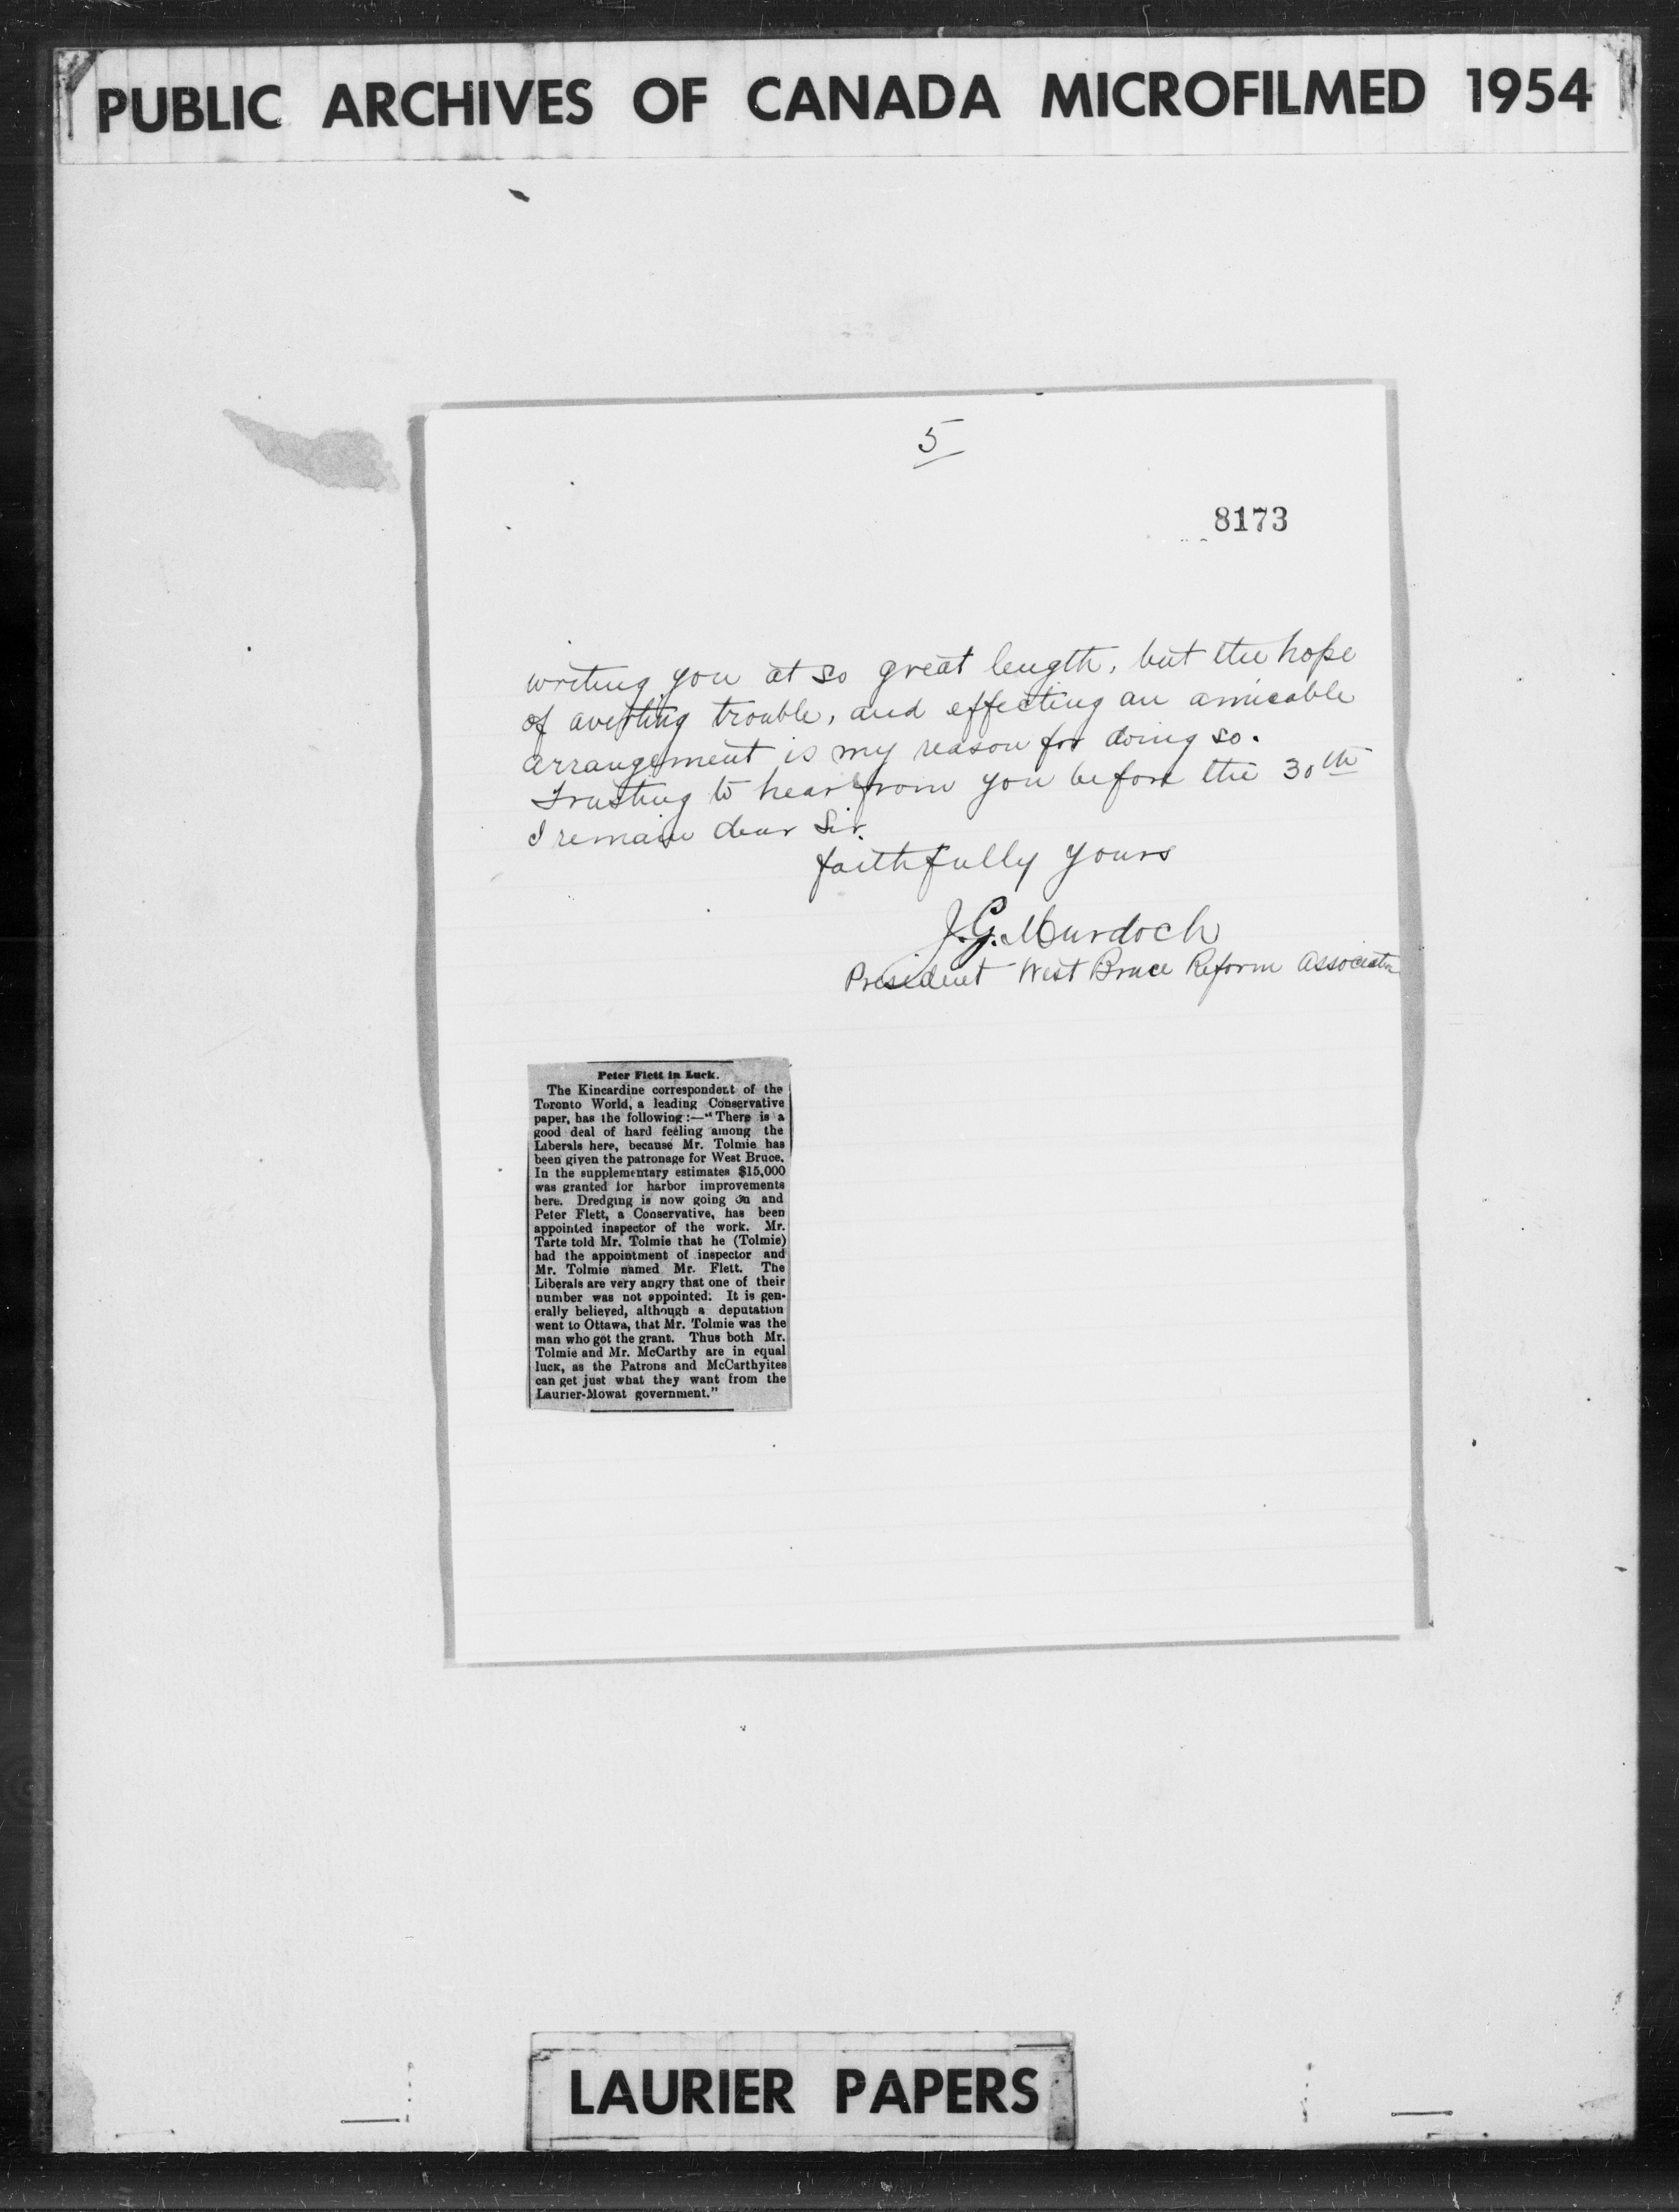 PUBLIC ARCHIVES OF CANADA MICROFILMED 1954
5
8173
writing you at so great length, but the hope
of averting trouble, and effecting an amicable
arrangement is my reason for doing so.
Trusting to hear from you before the 30th
I remain dear Sir.
faithfully yours
J.G. Murdoch
President West Bruce Reform Association
Peter Flett in Luck.
The Kincardine correspondent of the
Toronto World, a leading Conservative
paper, has the following :—"There is a
good deal of hard feeling among the
Liberals here, because Mr. Tolmie has
been given the patronage for West Bruce.
In the supplementary estimates $15,000
was granted for harbor improvements
here. Dredging is now going on and
Peter Flett, a Conservative, has been
appointed inspector of the work. Mr.
Tarte told Mr. Tolmie that he (Tolmie)
had the appointment of inspector and
Mr. Tolmie named Mr. Flett. The
Liberals are very angry that one of their
number was not appointed. It is gen-
erally believed, although a deputation
went to Ottawa, that Mr. Tolmie was the
man who got the grant. Thus both Mr.
Tolmie and Mr. McCarthy are in equal
luck, as the Patrons and McCarthyites
can get just what they want from the
Laurier-Mowat government."
LAURIER PAPERS